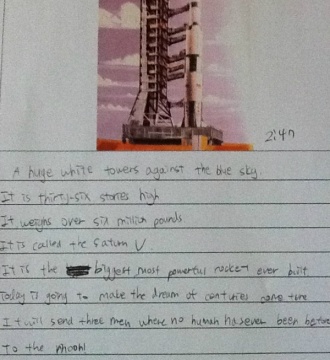 2:47
A huge white towers against the blue sky.
It is thirty-six stories high
It weighs over six million pounds
It is called the Saturn V
It is the biggest most powerful rocket ever built
Today is going to make the dream of centuries come true
It will send three men where no human has ever been before
to the moon!